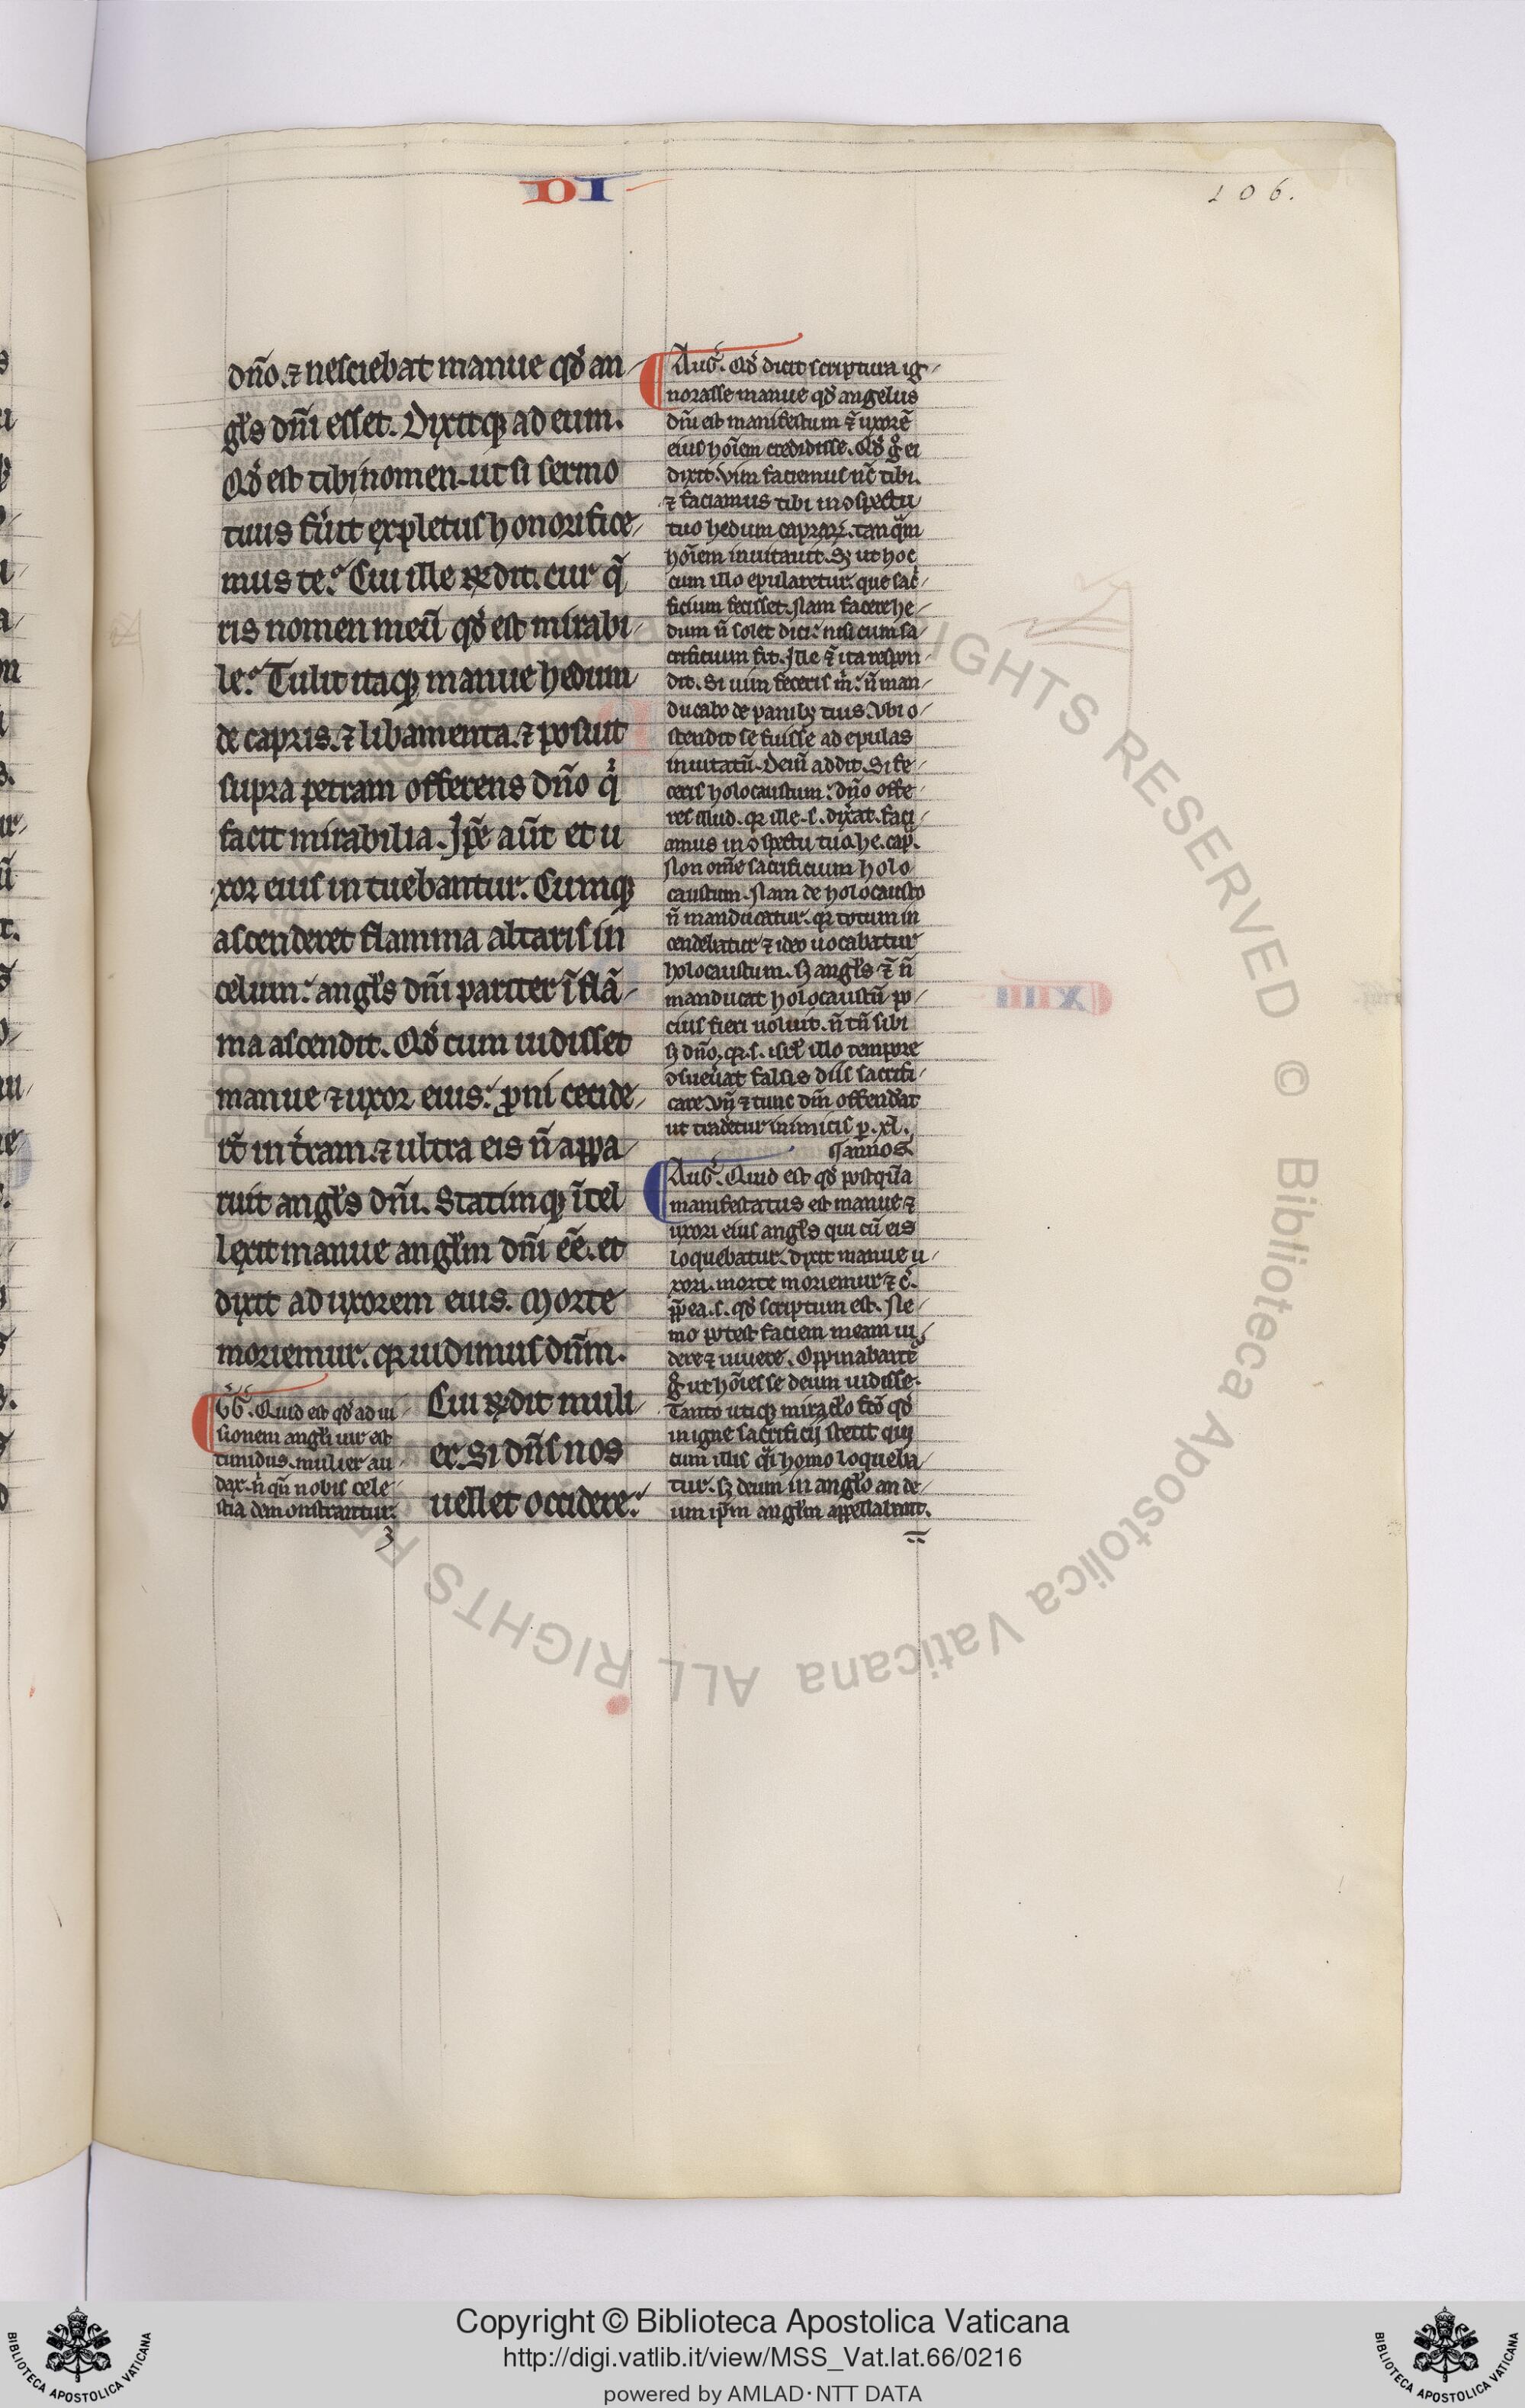 DI
106.
dño. ⁊ nesciebat manue qđ an
gl̃s dñi esset. Dixitqꝫ ad eum.
Qđ est tibi nomen. ut si sermo
tuus fũit expletus honorifice
mus te? Cui ille r̃ndit. cur q̃
ris nomen meũ qđ est mirabi
le? Tulit itaqꝫ manue hedum
de capris. ⁊ libamenta. ⁊ posuit
supra petram offerens dño q̇
facit mirabilia. Ip̃e aũt et u
xor eius intuebantur. Cumqꝫ
ascenderet flamma altaris in
celum: angl̃s dñi pariter ĩ flã
ma ascendit. Qđ cum uidisset
manue ⁊ uxor eius: ꝓni cecide
rt̃ in t̃ram. ⁊ ultra eis ñ appa
ruit angl̃s dñi. Statimqꝫ ĩtel
lexit manue angl̃m dñi eẽ. et
dixit ad uxorem eius. Morte
moriemur. qꝛ uidimus dñm.
Cui r̃ndit muli
er. Si dñs nos
uellet occidere:
Quid est qđ ad ui
sionem angl̃i uir est
timidus. mulier au
dax. ñ qñ nobis cele
stia demonstrantur:
Aug̃. Qđ dicit scriptura ig
norasse manue qđ angelus
dñi est manifestum ÷ uxorẽ
eius hoĩem credidisse. Qđ g̊ ei
dixit. Vim faciemus nc̃ tibi.
⁊ faciamus tibi in ɔspectu
tuo hedum capraꝝ. tanq̃m
hoĩem inuitauit. Sꝫ ut hoc
cum illo epularetur. que sac̃
ficium fecisset. Nam facere he
dum ñ solet dici: nisi cum sa
crificium fit. Ille ÷ ita respon
dit. Si uim feceris m̃: ñ man
ducabo de panibꝫ tuis. Vbi o
stendit se fuisse ad epulas
inuitatũ. Deiñ addit. Si fe
ceris holocaustum: dño offe
res illud. qꝛ ille .s. dix̃at. faci
amus in ɔspectu tuo. he. cap̃.
Non om̃e sacrificium holo
caustum. Nam de holocausto
ñ manducatur. qꝛ totum in
cendebatur ⁊ ideo uocabatur
holocaustum. Sꝫ angl̃s ÷ ñ
manducat holocaustũ po
cius fieri uoluit. ñ tñ sibi
sꝫ dño. qꝛ .s. isr̃l illo tempore
ɔsueuat falsis diis sacrifi
care. Vñ ⁊ tunc dñm offend̃at
ut trad̃etur inimicis p. xl.
annos.
Aug̃. Quid est qđ postq̃a
manifestatus est manue ⁊
uxori eius angl̃s qui cũ eis
loquebatur. dixit manue u
xori. morte moriemur ⁊ c̃.
ꝓp̃ ea .s. qđ scriptum est. Ne
mo potest faciem meam ui
dere ⁊ uiuere. Oppinabant̃
g̊ ut hõies se deum uidisse.
Tanto utiqꝫ miracl̃o fc̃o qđ
in igne sacrificij stetit qui
cum illis q̃i homo loqueba
tur. sꝫ deum in angl̃o an de
um ip̃m angl̃m appellabant.
Copyright © Biblioteca Apostolica Vaticana
http://digi.vatlib.it/view/MSS_Vat.lat.66/0216
powered by AMLAD·NTT DATA